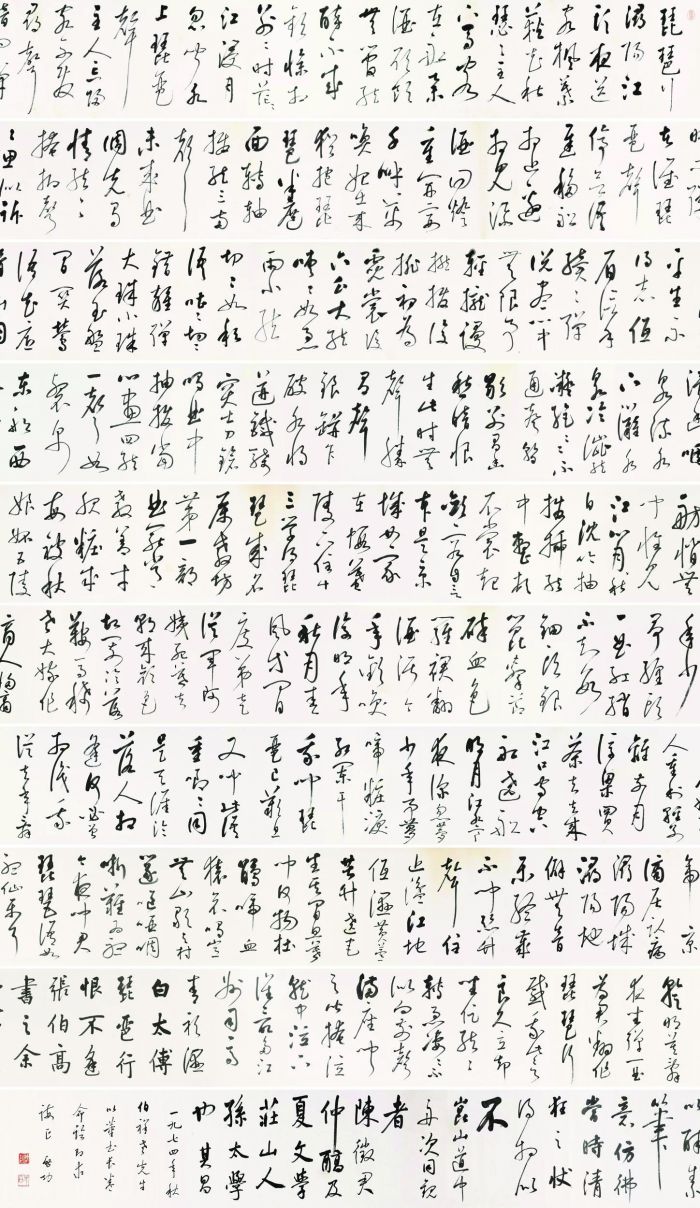 琵琶行
潯陽江
頭夜送
客楓葉
荻花秋
瑟瑟主人
下馬客
在船舉
酒欲飲
無管絃
醉不成
歡慘將
別別時茫
江浸月
忽聞水
上琵琶
聲
主人忘歸
客不發
尋聲
琶聲
停欲語
遲移船
相近邀
相見添
酒回燈
重開宴
千呼萬
喚始出來
猶抱琵
琶半遮
面轉軸
撥絃三兩
聲
未成曲
調先有
情絃〻
掩抑聲
〻思似訴
平生不
得志低
眉信手
續〻彈
說盡心中
無限事
輕攏慢
撚撥復
挑初為
霓裳後
六幺大絃
嘈〻如急
雨小絃
切〻如私
語嘈〻切〻
錯雜彈
大珠小珠
落玉盤
間關鶯
語花底
泉流水
下灘水
泉冷澀絃
凝絕〻〻不
通聲暫
歇別有幽
愁暗恨
生此時無
聲勝
有聲
銀瓶乍
破水漿
迸鐵騎
突出刀鎗
鳴曲中
抽撥當
心畫四絃
一聲如
裂帛
東船西
舫悄無
言惟見
江心月秋
白沈吟抽
撥插絃
中整頓
衣裳起
斂容自言
本是京
城女家
在蝦蟇
陵下住十
三學得琵
琶成名
屬教坊
第一部
曲罷常
教善才
服粧成
每被秋
娘妒五陵
年少
爭纏頭
一曲紅綃
不知數
鈿頭銀
篦擊節
碎血色
羅裙翻
酒污今
年歡笑
復明年
秋月春
風等閒
度弟走
從軍阿
姨死暮去
朝來顏色
故門前冷落
鞍馬稀
老大嫁作
商人婦商
人重利輕
離別前月
浮梁買
茶去去來
江口守空
船遶船
明月江水寒
夜深忽夢
少年事夢
啼粧淚
紅闌干
我聞琵
琶已歎息
又聞此語
重唧〻同
是天涯淪
落人相
逢何必曾
相識我
從去年辭
帝京
謫居臥病
潯陽城
潯陽地
僻無音
樂終歲
不聞絲竹
聲住
近湓江地
低濕黃蘆
苦竹遶宅
生其間旦暮
聞何物杜
鵑啼血
猿哀鳴豈
無山歌與村
笛嘔啞啁
哳難為聽
今夜聞君
琵琶語如
聽仙樂耳
暫明莫辭
更坐彈一曲
為君翻作
琵琶行
感我此言
良久立卻
坐促絃〻
轉急淒〻不
似向前聲
滿座聞
之皆掩泣
就中泣下
誰最多江
州司馬
青衫濕
白太傅
琵琶行
恨不逢
張伯高
書之余
以醉素
筆
意仿彿
當時清
狂之狀
得相似
不
崑山道中
舟次同觀
者
陳徵君
仲醇及
夏文學
莊山人
孫太學
也其昌
一九七四年秋
伯祥老先生
誨正 啟功